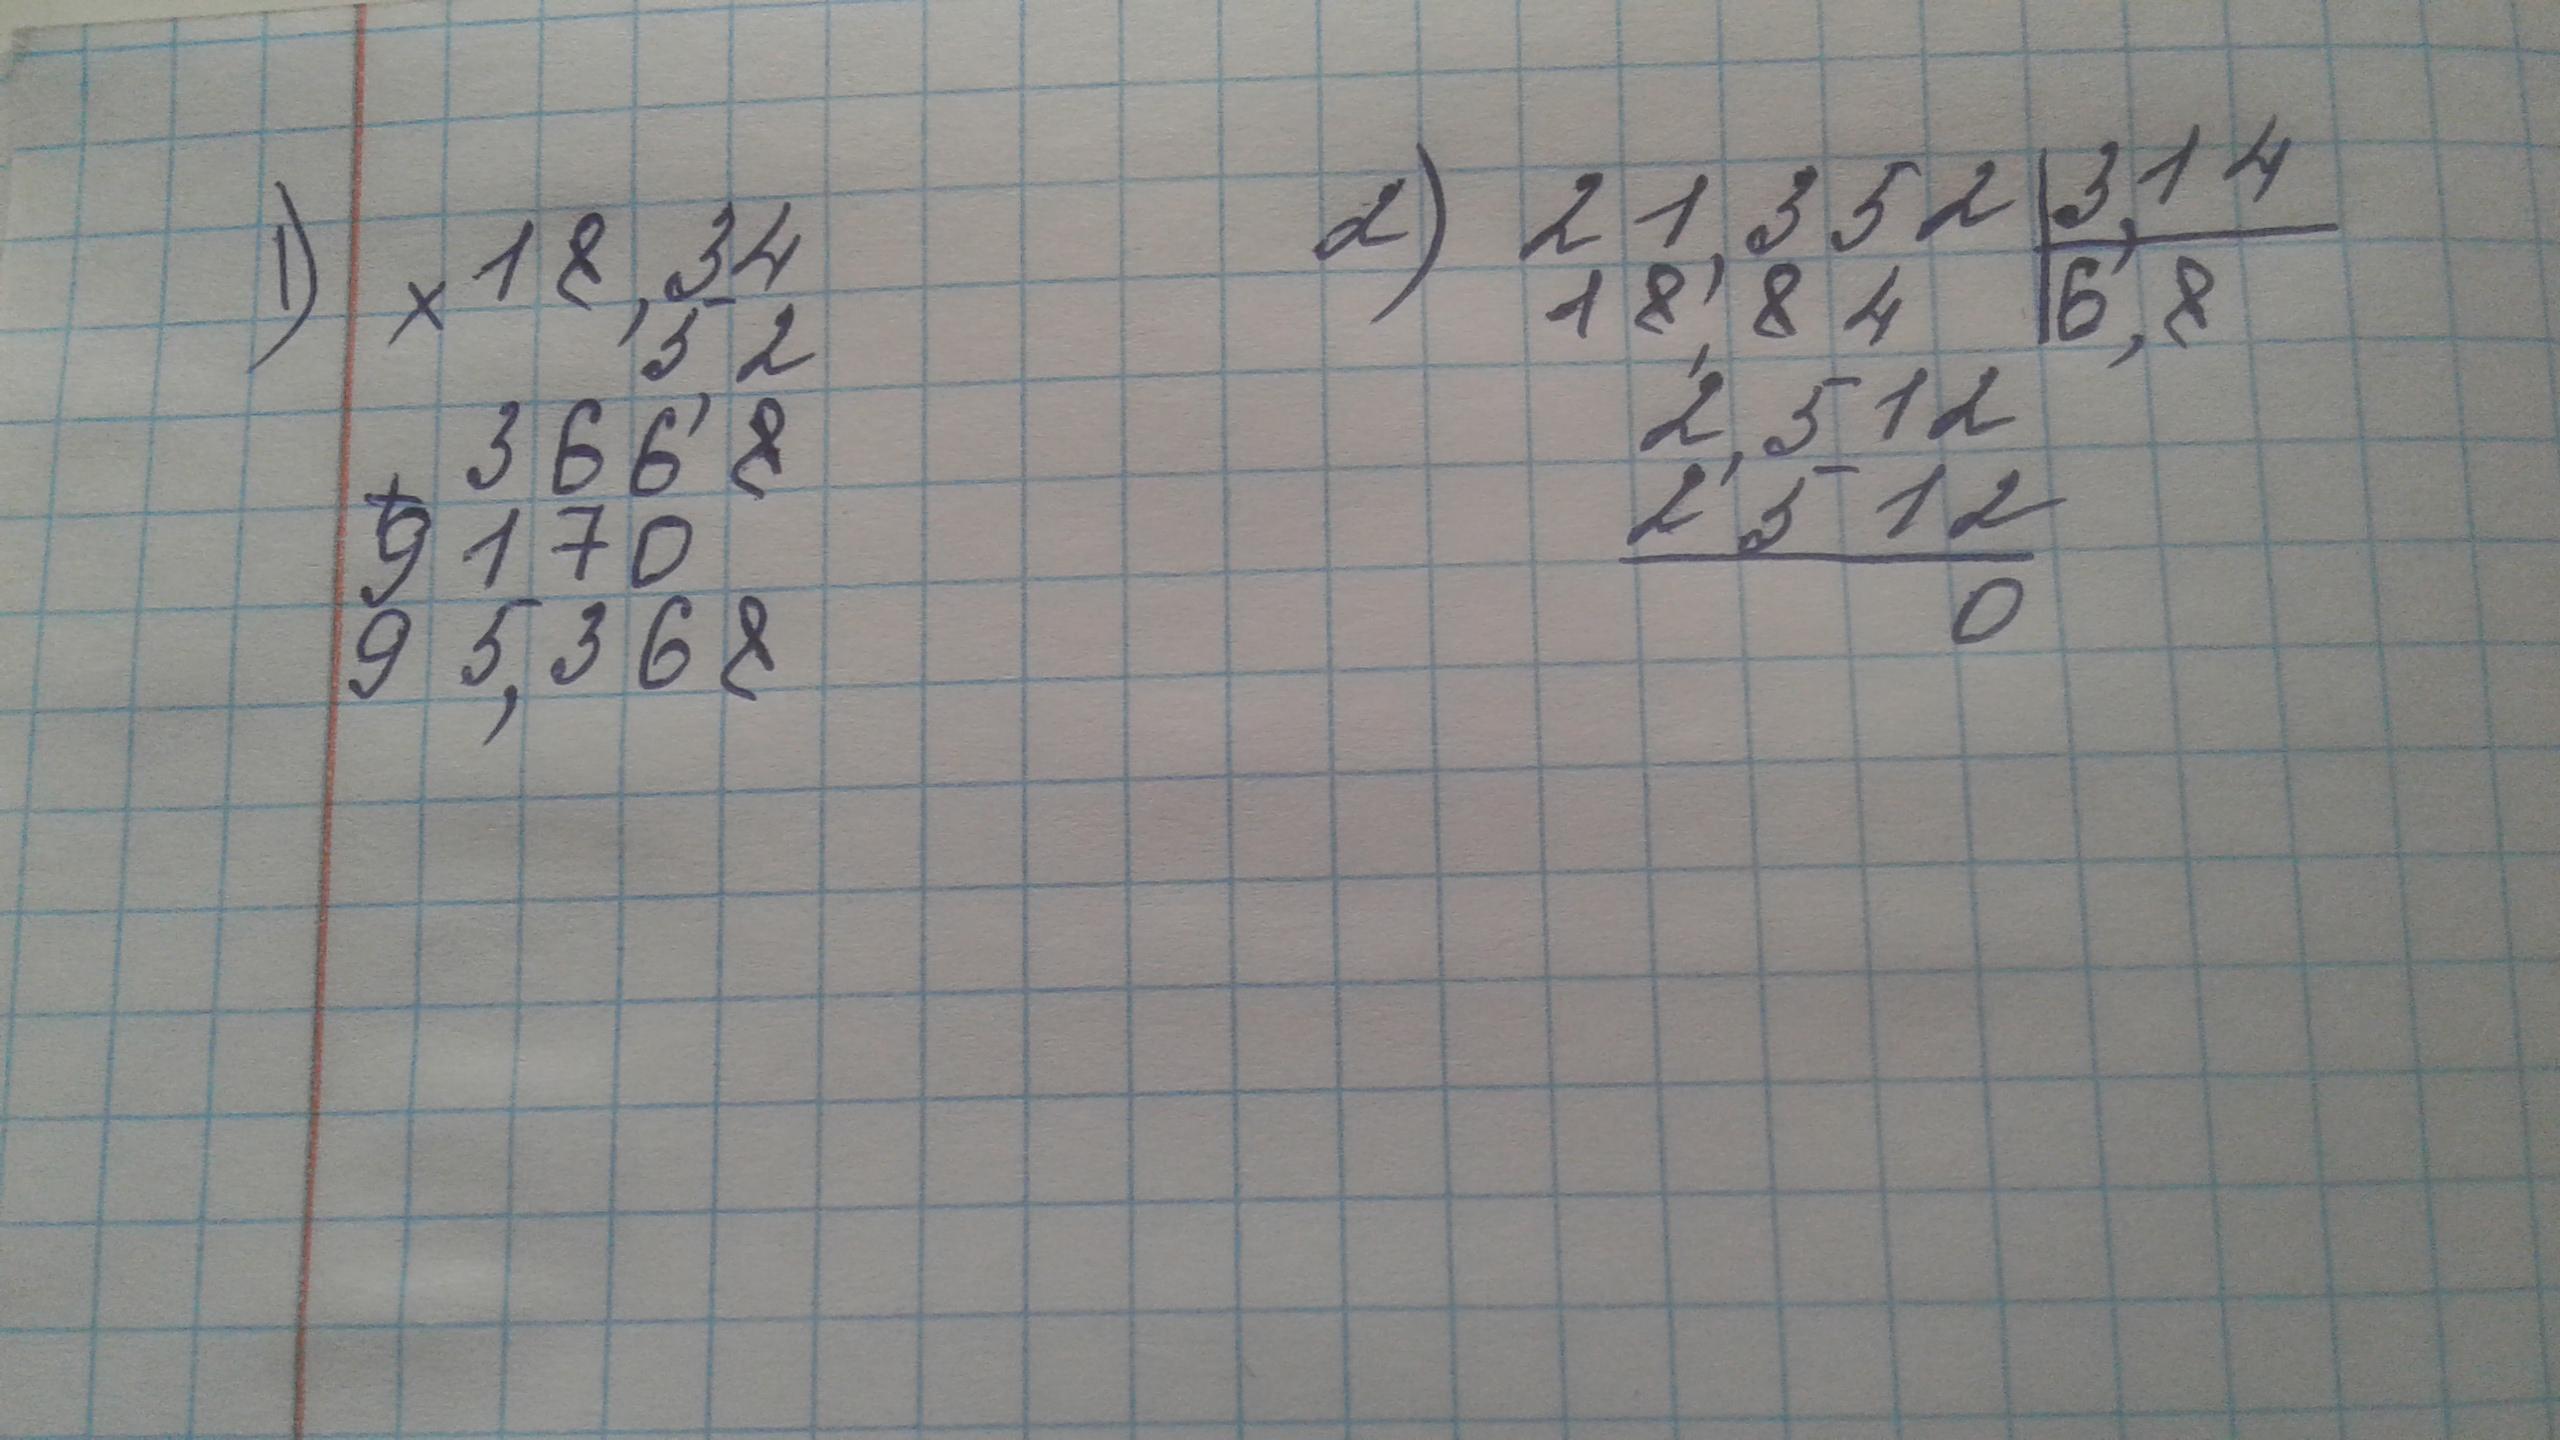 1) × 18,34
52
366,8
+ 9170
95,368
2) 21,352 | 3,14
18,84 | 6,8
2,512
2,512
0